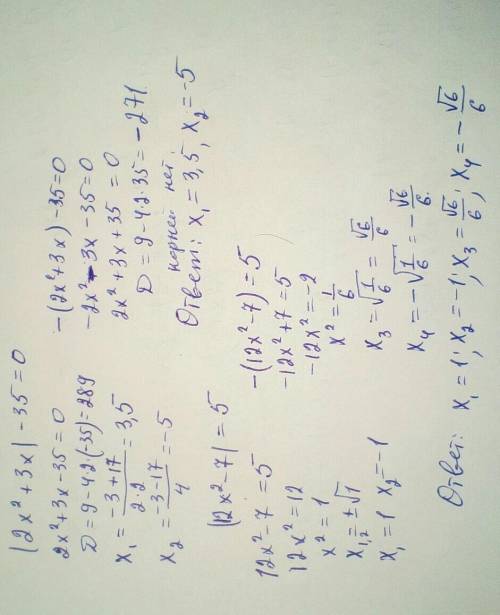 |2x²+3x|-35=0
2x²+3x-35=0
D=9-4·2·(-35)=289
x₁=(-3+17)/(2·2)=3,5
x₂=(-3-17)/4=-5
-(2x²+3x)-35=0
-2x²-3x-35=0
2x²+3x+35=0
D=9-4·2·35=-271
корней нет.
Ответ: x₁=3,5, x₂=-5
|12x²-7|=5
12x²-7=5
12x²=12
x²=1
x₁,₂=±√1
x₁=1 x₂=-1
-(12x²-7)=5
-12x²+7=5
-12x²=-2
x²=1/6
x₃=√(1/6)=√6/6
x₄=-√(1/6)=-√6/6.
Ответ: x₁=1; x₂=-1; x₃=√6/6; x₄=-√6/6